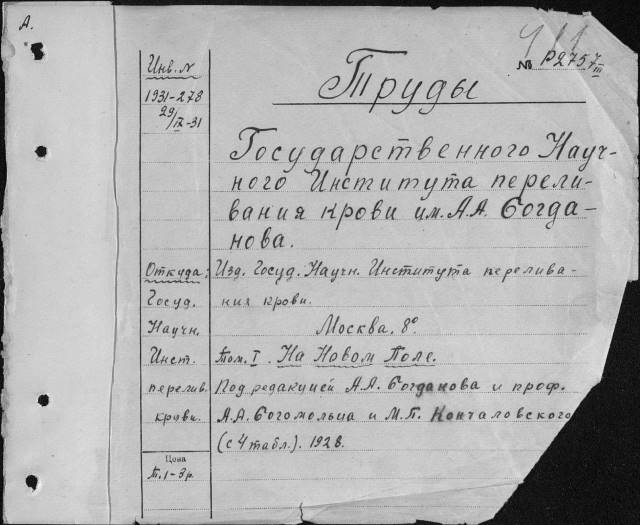 А.
№ Р2757
III
Инв. N
1931-278
29/IX-31
Труды
Государственного Науч-
ного Института перели-
вания крови им. А.А. Богда-
нова.
Откуда:
Госуд.
Научн.
Инст.
перелив.
крови.
Изд. Госуд. Научн. Института перелива-
ния крови.
Москва. 8°
Том. I. На Новом Поле.
Под редакцией А.А. Богданова и проф.
А.А. Богомольца и М.П. Кончаловского
(с 4 табл.). 1928.
Цена
т. 1-3р.